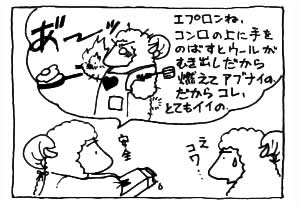 あ゛〜〜ッ
エプロンね、
コンロの上に手を
のばすとウールが
むき出しだから
燃えてアブナイの。
だからコレ、
とてもイイの。
安全
え コワ…